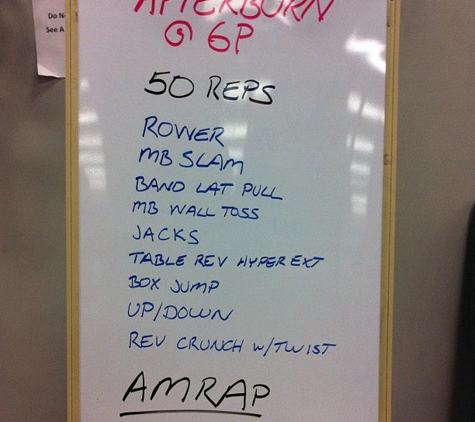 Do N
See A
AFTERBURN
@ 6P
50 REPS
ROWER
MB SLAM
BAND LAT PULL
MB WALL TOSS
JACKS
TABLE REV HYPER EXT
BOX JUMP
UP/DOWN
REV CRUNCH W/TWIST
AMRAP